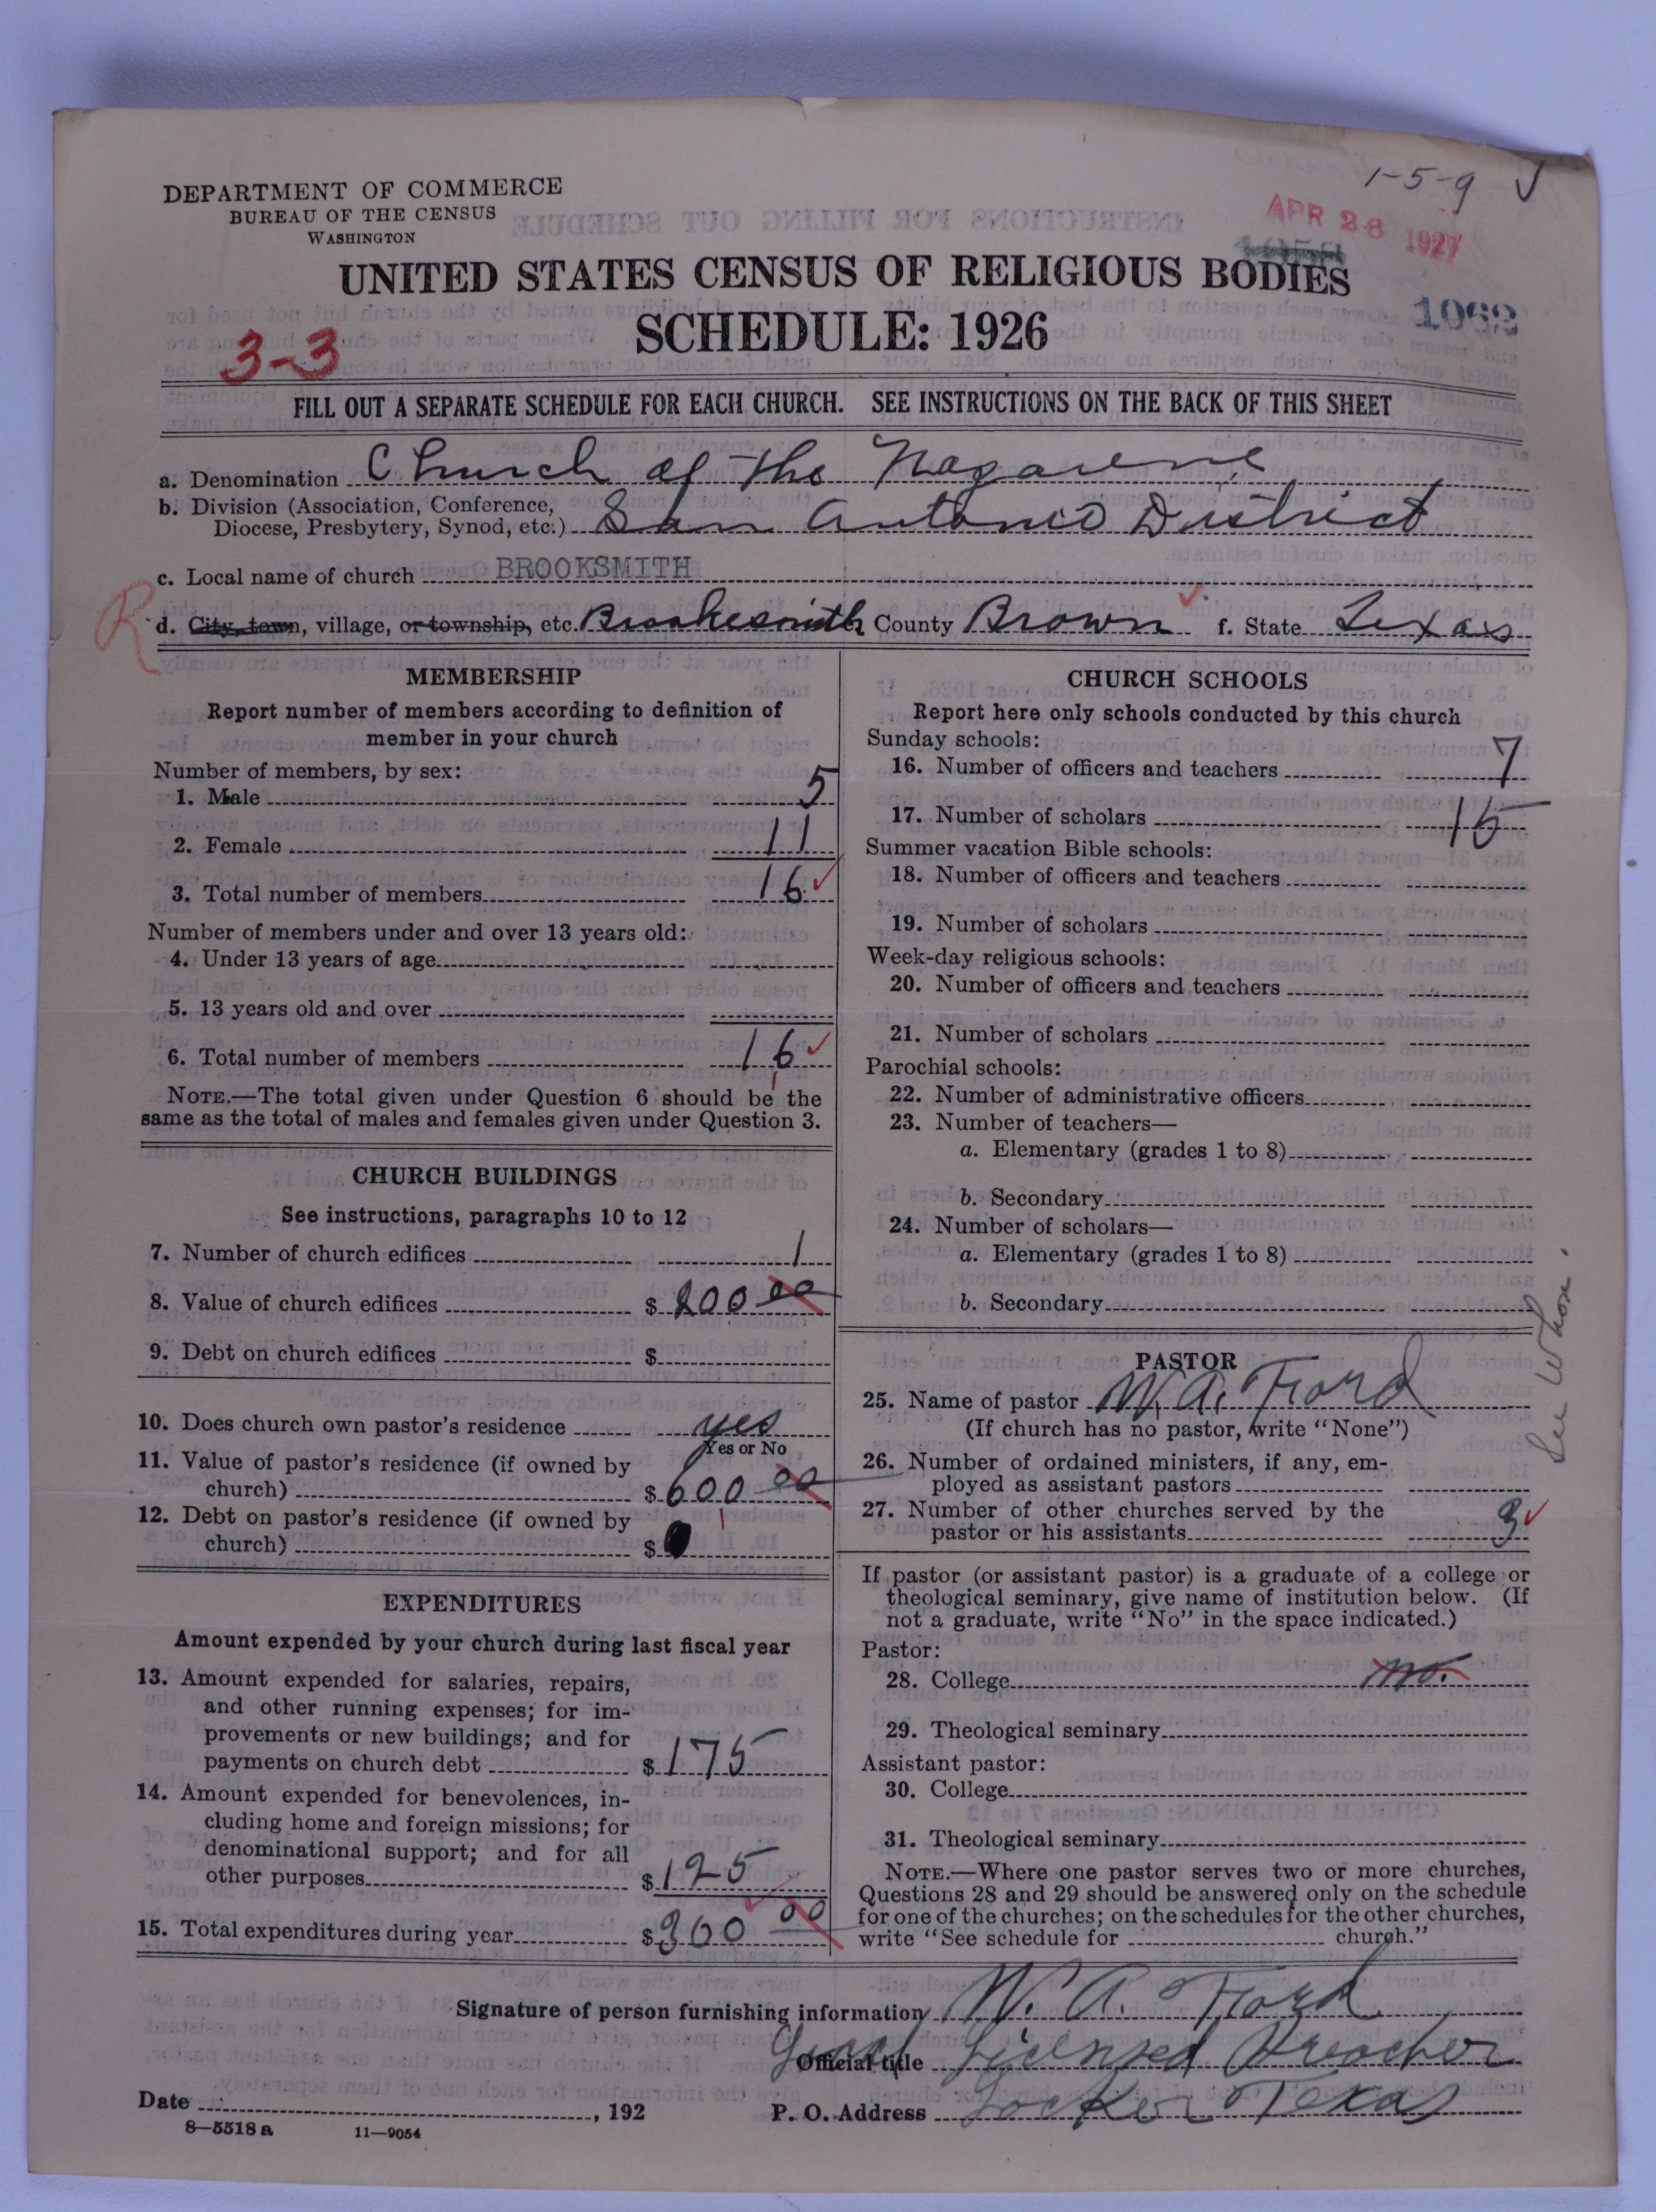 1-5-9
APR 28 1927
DEPARTMENT OF COMMERCE
BUREAU OF THE CENSUS
WASHINGTON
UNITED STATES CENSUS OF RELIGIOUS BODIES
1062
SCHEDULE: 1926
3-3
FILL OUT A SEPARATE SCHEDULE FOR EACH CHURCH. SEE INSTRUCTIONS ON THE BACK OF THIS SHEET
a. Denomination Church of the Nazarene
b. Division (Association, Conference,
Diocese, Presbytery, Synod, etc.) San Antonio District
c. Local name of church BROOKSMITH
R
d. City, town, village, or township, etc. Brookesmith County Brown f. State Texas
MEMBERSHIP
Report number of members according to definition of
member in your church
Number of members, by sex:
1. Male 5
2. Female 11
3. Total number of members 16
Number of members under and over 13 years old:
4. Under 13 years of age
5. 13 years old and over
6. Total number of members 16
NOTE.—The total given under Question 6 should be the
same as the total of males and females given under Question 3.
CHURCH BUILDINGS
See instructions, paragraphs 10 to 12
7. Number of church edifices 1
8. Value of church edifices $ 200 00
9. Debt on church edifices $
10. Does church own pastor's residence yes
Yes or No
11. Value of pastor's residence (if owned by
church) $ 600 00
12. Debt on pastor's residence (if owned by
church) $
EXPENDITURES
Amount expended by your church during last fiscal year
13. Amount expended for salaries, repairs,
and other running expenses; for im-
provements or new buildings; and for
payments on church debt $ 175
14. Amount expended for benevolences, in-
cluding home and foreign missions; for
denominational support; and for all
other purposes $ 125
15. Total expenditures during year $ 300 00
CHURCH SCHOOLS
Report here only schools conducted by this church
Sunday schools:
16. Number of officers and teachers 7
17. Number of scholars 15
Summer vacation Bible schools:
18. Number of officers and teachers
19. Number of scholars
Week-day religious schools:
20. Number of officers and teachers
21. Number of scholars
Parochial schools:
22. Number of administrative officers
23. Number of teachers—
a. Elementary (grades 1 to 8)
b. Secondary
24. Number of scholars—
a. Elementary (grades 1 to 8)
b. Secondary
PASTOR
25. Name of pastor W. A. Ford
(If church has no pastor, write "None")
26. Number of ordained ministers, if any, em-
ployed as assistant pastors
27. Number of other churches served by the
pastor or his assistants 3
If pastor (or assistant pastor) is a graduate of a college or
theological seminary, give name of institution below. (If
not a graduate, write "No" in the space indicated.)
Pastor:
28. College no.
29. Theological seminary
Assistant pastor:
30. College
31. Theological seminary
NOTE.—Where one pastor serves two or more churches,
Questions 28 and 29 should be answered only on the schedule
for one of the churches; on the schedules for the other churches,
write "See schedule for church."
See
Signature of person furnishing information W. A. Ford
Official title Local Licensed Preacher
Date , 192
P. O. Address Locker Texas
8—5518 a 11—9054